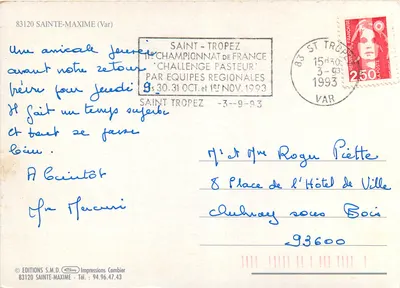 83120 SAINTE-MAXIME (Var)
SAINT-TROPEZ
II° CHAMPIONNAT de FRANCE
"CHALLENGE PASTEUR"
PAR EQUIPES REGIONALES
30.31 OCT. et 1er NOV. 1993
SAINT TROPEZ -3-9-93
83 ST TROPEZ
3-9
1993
VAR
2,50
Une amicale pensée
avant notre retour
prévu pour jeudi 9.
Il fait un temps superbe
et tout se passe
bien.
A bientôt
Mme
Mr et Mme Roger Piette
8 Place de l'Hôtel de Ville
Aulnay sous Bois
93600
© EDITIONS S.M.D. Impressions Combier
83120 SAINTE-MAXIME Tél. : 94.96.47.43